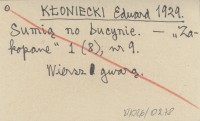 KŁONIECKI Eduard 1929.
Sumią no bucynie. — „Za-
kopane" 1 (8), nr 9.
Wiersz gwarą.